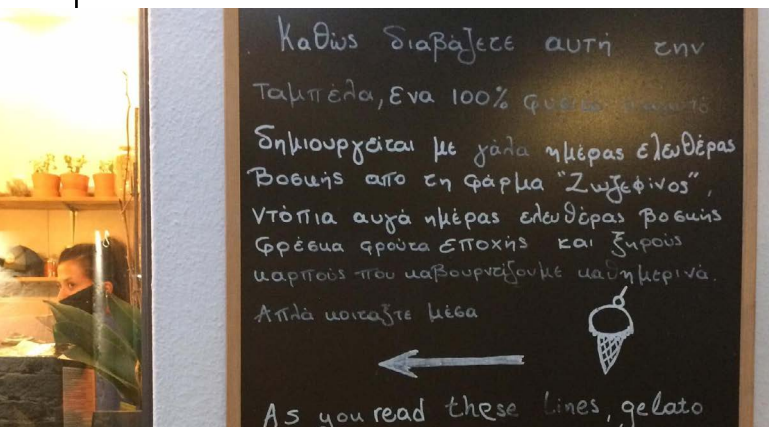 Καθώς διαβάζετε αυτή την
ταμπέλα, ένα 100% φυσικό παγωτό
δημιουργείται με γάλα ημέρας ελευθέρας
βοσκής απο τη φάρμα "Ζωζεφίνος",
ντόπια αυγά ημέρας ελευθέρας βοσκής
φρέσκα φρούτα εποχής και ξηρούς
καρπούς που καβουρντίζουμε καθημερινά.
Απλά κοιταξτε μέσα
As you read these lines, gelato